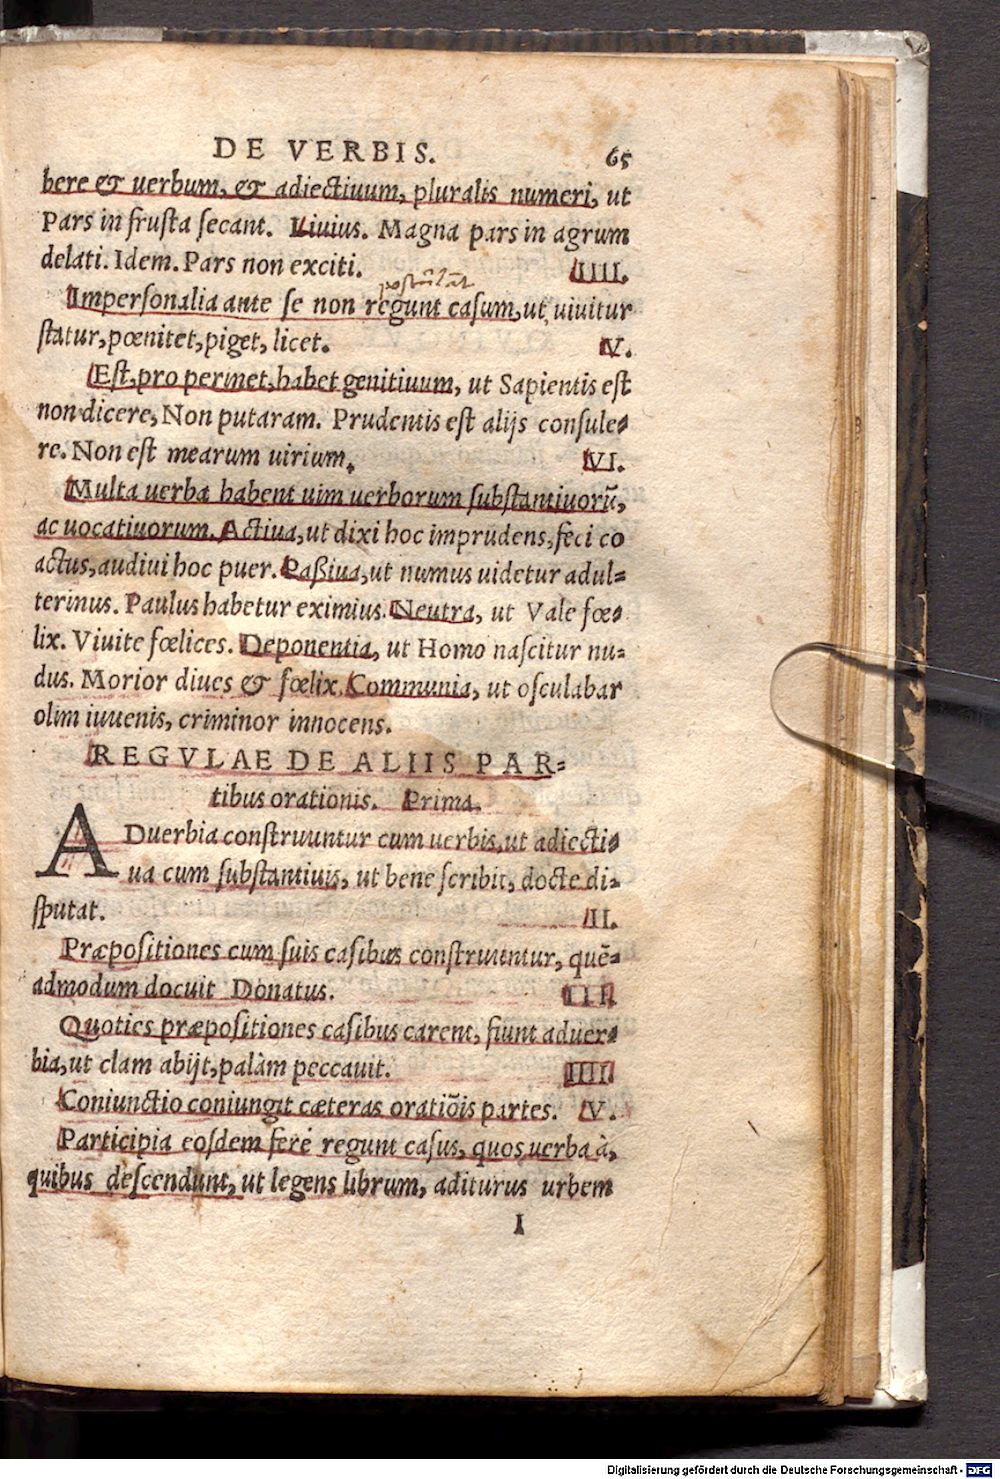 DE VERBIS. 65
bere & uerbum, & adiectiuum, pluralis numeri, ut
Pars in frusta secant. Liuius. Magna pars in agrum
delati. Idem. Pars non exciti. IIII.
Impersonalia ante se non regunt casum, ut uiuitur
statur, pœnitet, piget, licet. V.
Est, pro pertinet, habet genitiuum, ut Sapientis est
non dicere, Non putaram. Prudentis est alijs consule-
re. Non est mearum uirium. VI.
Multa uerba habent uim uerborum substantiuorũ,
ac uocatiuorum. Actiua, ut dixi hoc imprudens, feci co
actus, audiui hoc puer. Paßiua, ut numus uidetur adul=
terinus. Paulus habetur eximius. Neutra, ut Vale fœ-
lix. Viuite fœlices. Deponentia, ut Homo nascitur nu=
dus. Morior diues & fœlix. Communia, ut osculabar
olim iuuenis, criminor innocens.
REGVLAE DE ALIIS PAR=
tibus orationis. Prima.
ADuerbia construuntur cum uerbis, ut adiecti-
ua cum substantiuis, ut bene scribit, docte di=
sputat. II.
Præpositiones cum suis casibus construuntur, quẽ=
admodum docuit Donatus. III.
Quoties præpositiones casibus carent, fiunt aduer-
bia, ut clam abijt, palàm peccauit. IIII.
Coniunctio coniungit cæteras oratiõis partes. V.
Participia eosdem ferè regunt casus, quos uerba à,
quibus descendunt, ut legens librum, aditurus urbem
I
Digitalisierung gefördert durch die Deutsche Forschungsgemeinschaft - DFG